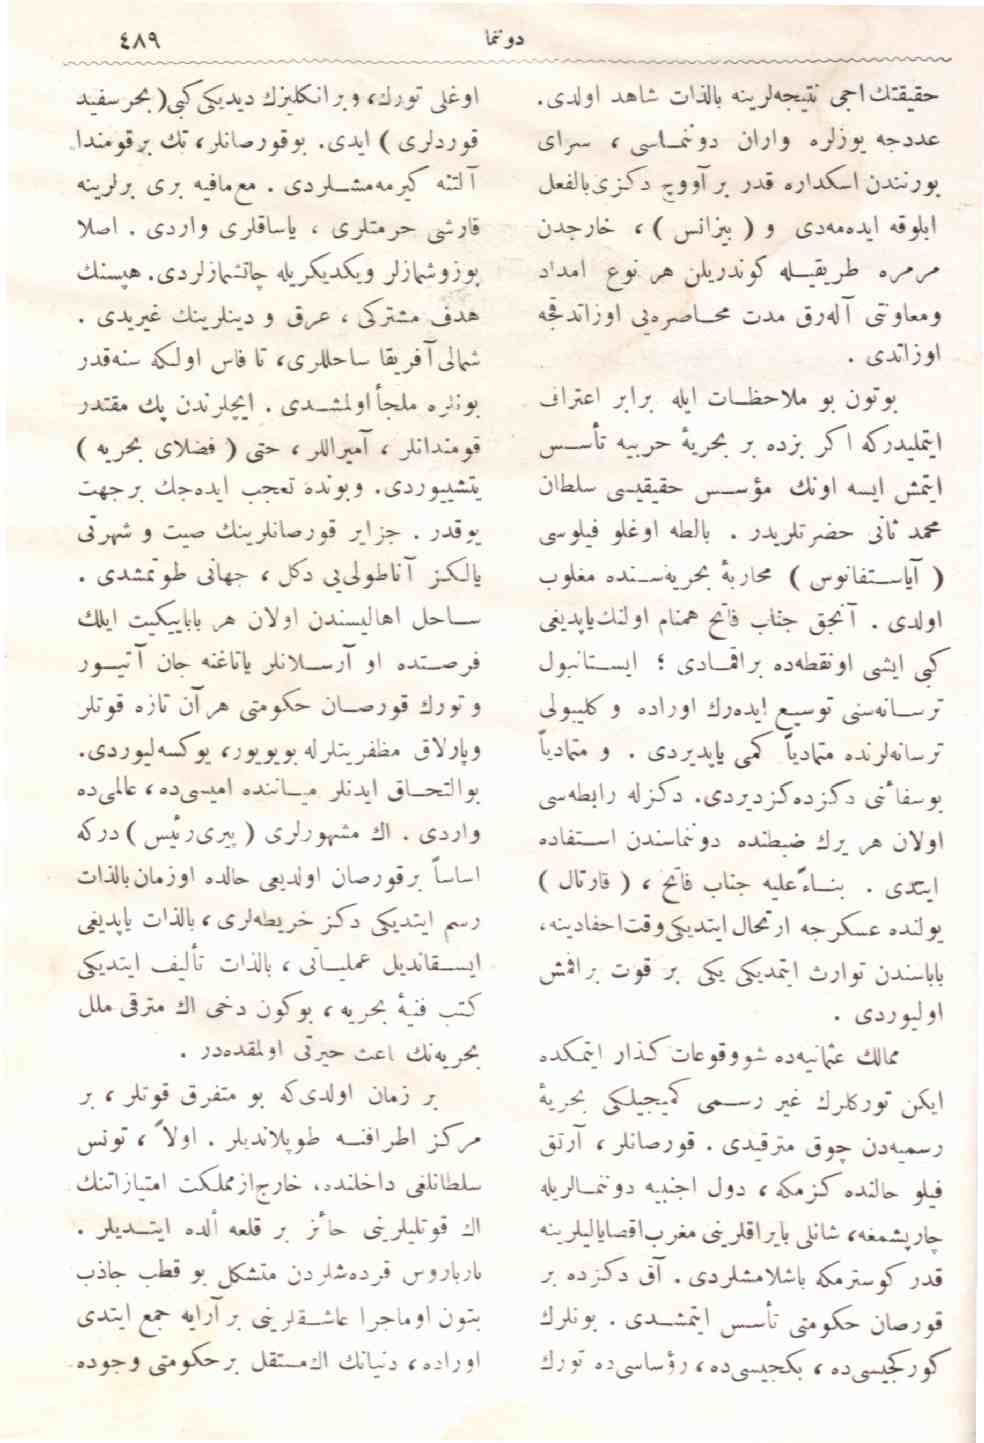 دونما
٤٨٩
حقیقتك اجی نتیجه‌لرینه بالذات شاهد اولدی.
عددجه یوزلره واران دونماسی ، سرای
بورنندن اسکداره قدر بر آووچ دکزی بالفعل
ابلوقه ایده‌مه‌دی و ( بیزانس ) ، خارجدن
مرمره طریقیله کوندریلن هر نوع امداد
ومعاونتی آله‌رق مدت محاصره‌یی اوزاتدقجه
اوزاتدی .
بوتون بو ملاحظات ایله برابر اعتراف
ایتملیدرکه اکر بزده بر بحریهٔ حربیه تأسس
ایتمش ایسه اونك مؤسس حقیقیسی سلطان
محمد ثانی حضرتلریدر . بالطه اوغلو فیلوسی
( آیاستفانوس ) محاربهٔ بحریه‌سنده مغلوب
اولدی . آنجق جناب فاتح همنام اولنك یاپدیغی
کبی ایشی اونقطه‌ده براقمادی ؛ ایستانبول
ترسانه‌سنی توسیع ایده‌رك اوراده و کلیبولی
ترسانه‌لرنده متمادیاً کمی یاپدیردی . و متمادیاً
بوسفائنی دکزده کزدیردی. دکزله رابطه‌سی
اولان هر یرك ضبطنده دونماسندن استفاده
ایتدی . بناءً علیه جناب فاتح ، ( قارتال )
یولنده عسکرجه ارتحال ایتدیکی وقت احفادینه،
باباسندن توارث ایتمدیکی یکی بر قوت براقمش
اولیوردی .
ممالك عثمانیه‌ده شو وقوعات کذار ایتمکده
ایکن تورکلرك غیر رسمی کمیجیلکی بحریهٔ
رسمیه‌دن چوق مترقیدی . قورصانلر ، آرتق
فیلو حالنده کزمکه ، دول اجنبیه دونمالریله
چارپشمغه، شانلی بایراقلرینی مغرب اقصا یالیلرینه
قدر کوسترمکه باشلامشلردی . آق دکزده بر
قورصان حکومتی تأسس ایتمشدی . بونلرك
کورکجیسی‌ده ، یکجیسی‌ده ، رؤساسی‌ده تورك
اوغلی تورك، وبر انکلیزك دیدیکی کبی ( بحر سفید
قوردلری ) ایدی. بوقورصانلر ، تك بر قومندا
آلتنه کیرمه‌مشلردی . مع‌مافیه بری برلرینه
قارشی حرمتلری ، یاساقلری واردی . اصلا
بوزوشمازلر ویکدیکریله چاتشمازلردی. هپسنك
هدف مشترکی ، عرق و دینلرینك غیریدی .
شمالی آفریقا ساحللری، تا فاس اولکه سنه قدر
بونلره ملجأ اولمشدی . ایچلرندن پك مقتدر
قومندانلر ، آمیراللر ، حتی ( فضلای بحریه )
یتشییوردی. وبونده تعجب ایده‌جك بر جهت
یوقدر . جزایر قورصانلرینك صیت و شهرتی
یالکز آناطولی‌یی دکل ، جهانی طوتمشدی .
ساحل اهالیسندن اولان هر بابایکیت ایلك
فرصتده او آرسلانلر یاتاغنه جان آتیور
و تورك قورصان حکومتی هر آن تازه قوتلر
وپارلاق مظفریتلرله بویویور، یوکسه‌لیوردی.
بو التحاق ایدنلر میاننده امیسی‌ده ، عالمی‌ده
واردی . اك مشهورلری ( پیری رئیس ) درکه
اساساً بر قورصان اولدیغی حالده اوزمان بالذات
رسم ایتدیکی دکز خریطه‌لری ، بالذات یاپدیغی
ایسقاندیل عملیاتی ، بالذات تألیف ایتدیکی
کتب فنیهٔ بحریه ، بوکون دخی اك مترقی ملل
بحریه‌نك باعث حیرتی اولمقده‌در .
بر زمان اولدی‌که بو متفرق قوتلر ، بر
مرکز اطرافنه طوپلاندیلر . اولاً ، تونس
سلطانلغی داخلنده، خارج از مملکت امتیازاتنك
اك قوتلیلرینی حائز بر قلعه الده ایتدیلر .
بارباروس قرده‌شلردن متشکل بو قطب جاذب
بتون اوماجرا عاشقلرینی بر آرایه جمع ایتدی
اوراده ، دنیانك اك مستقل بر حکومتی وجوده